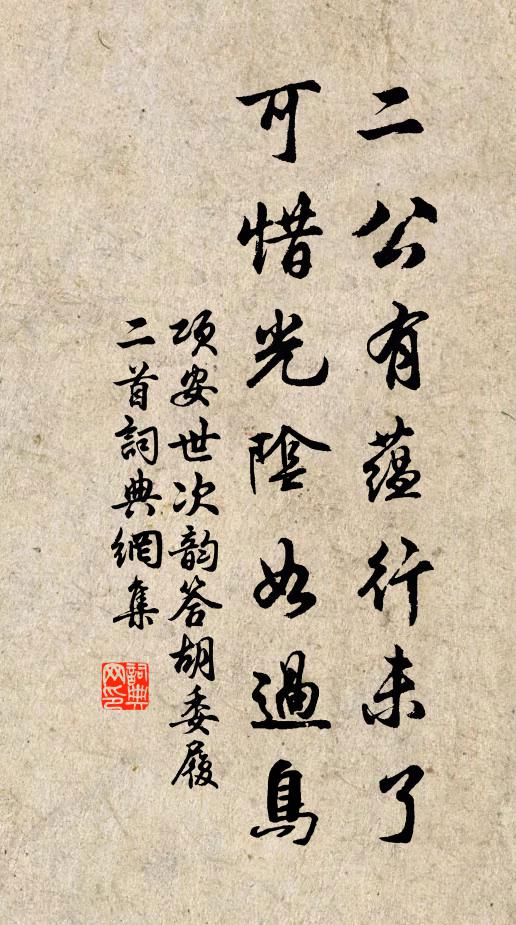 二公有蘊行未了
可惜光陰如過鳥
項安世次韵答胡委履
二首詞典網集
詞典網印